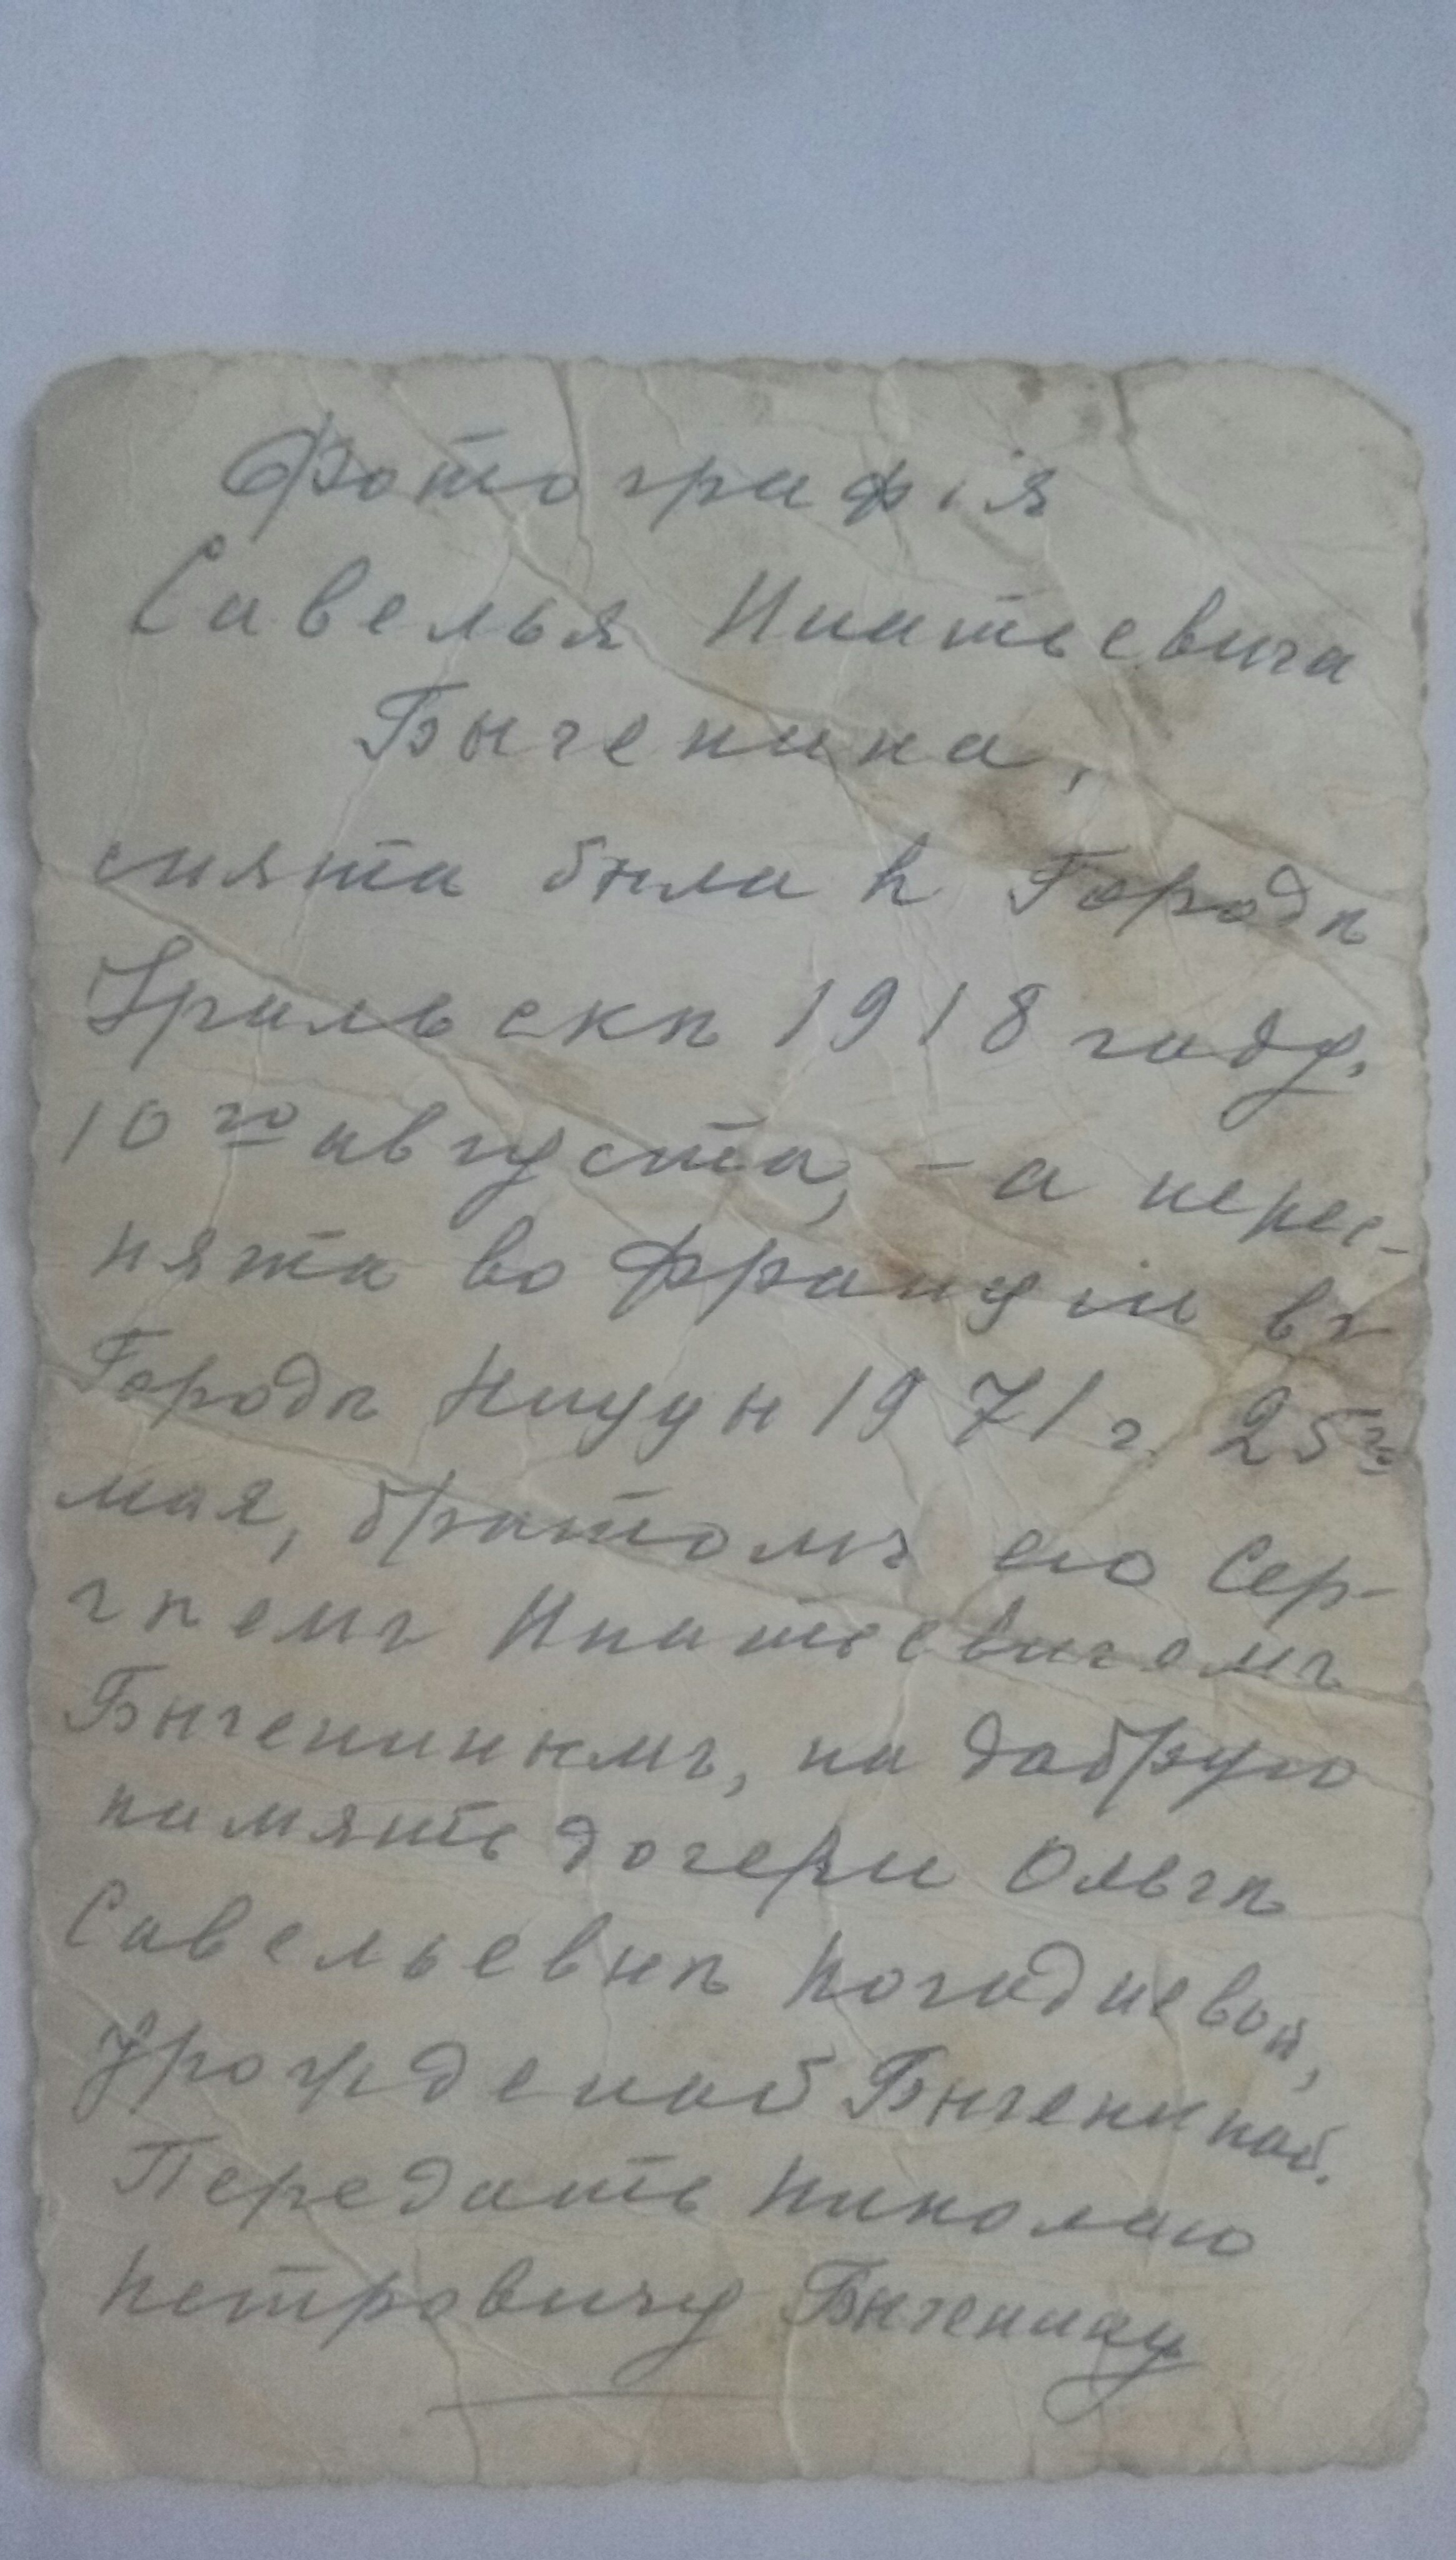 Фотографія
Савелья Ипатьевича
Быченина,
снята была в Городѣ
Уральскѣ 1918 году.
10го августа, – а перес-
нята во Франціи въ
Городѣ 1971 г. 25го
мая, братомъ его Сер-
гѣемъ Ипатьевичемъ
Бычениным, на добрую
память дочери Ольгѣ
Савельевнѣ Погадаевой,
урожденой Бычениной.
Передать Николаю
Петровичу Быченину